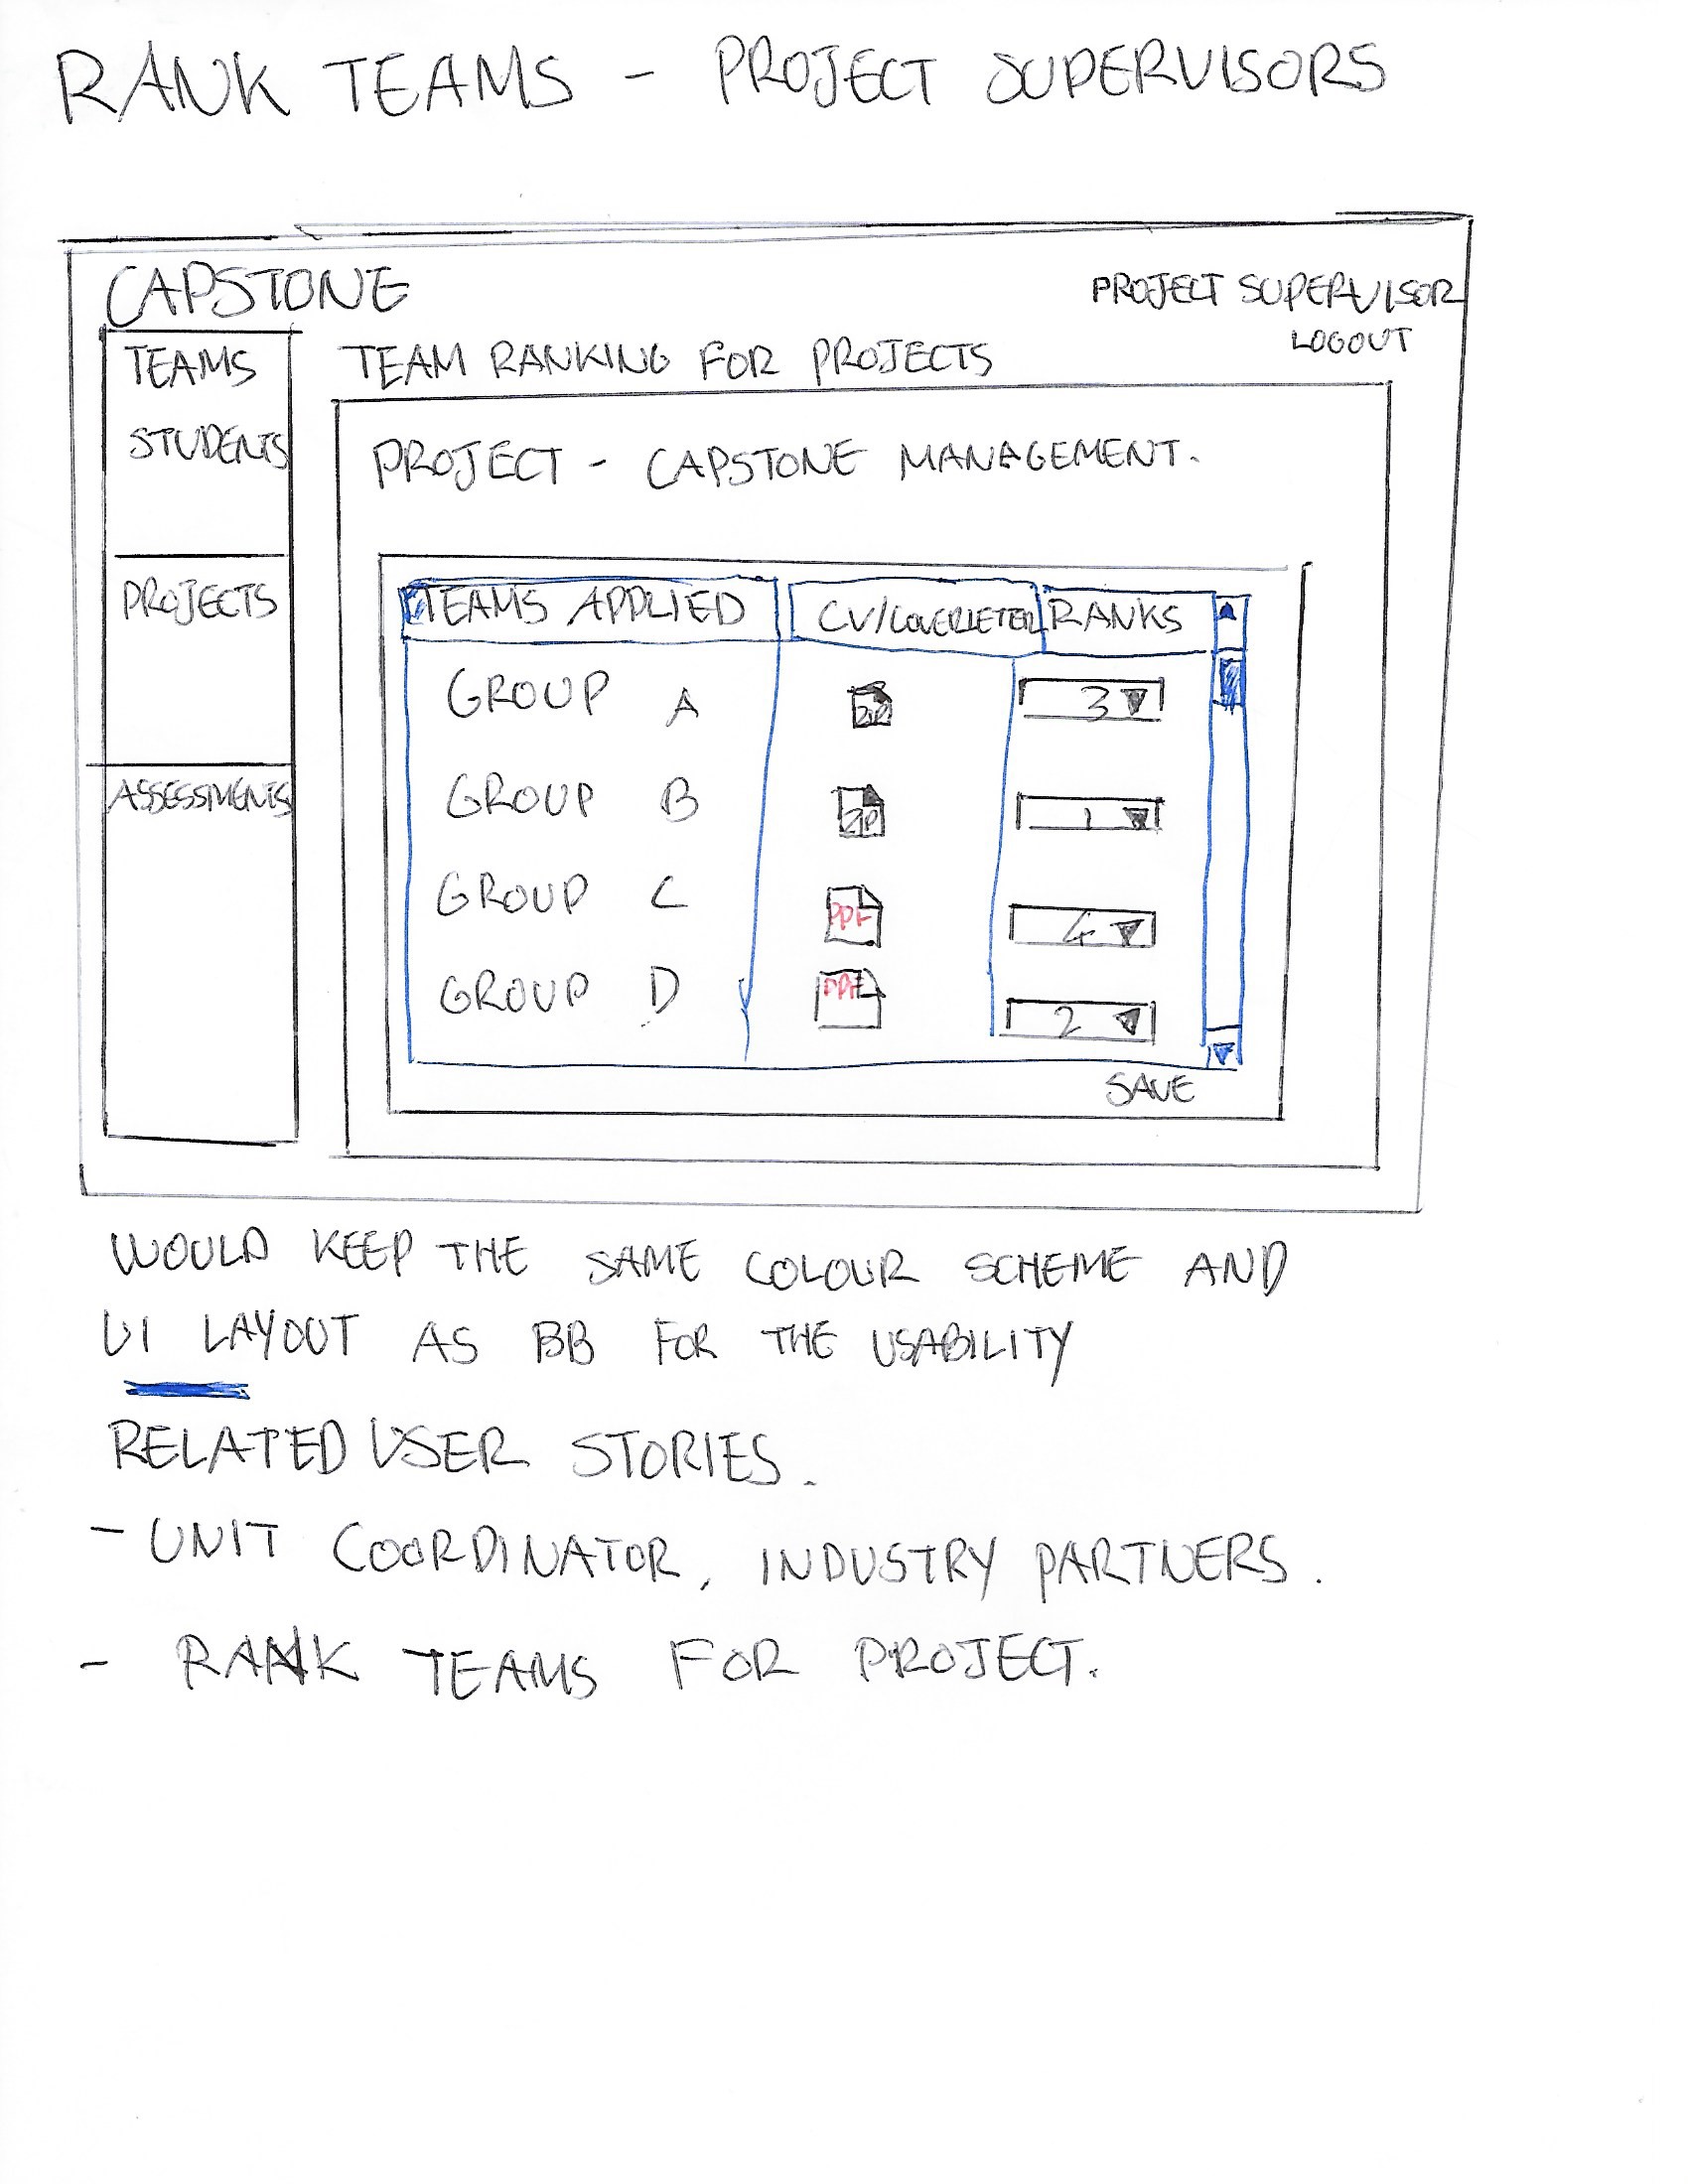 RANK TEAMS - PROJECT SUPERVISORS
CAPSTONE
PROJECT SUPERVISOR
LOGOUT
TEAMS
STUDENTS
PROJECTS
ASSESSMENTS
TEAM RANKING FOR PROJECTS
PROJECT - CAPSTONE MANAGEMENT.
TEAMS APPLIED CV/COVERLETER RANKS
GROUP A ZIP 3
GROUP B ZIP 1
GROUP C PDF 4
GROUP D PDF 2
SAVE
WOULD KEEP THE SAME COLOUR SCHEME AND
UI LAYOUT AS BB FOR THE USABILITY
RELATED USER STORIES.
- UNIT COORDINATOR, INDUSTRY PARTNERS.
- RANK TEAMS FOR PROJECT.